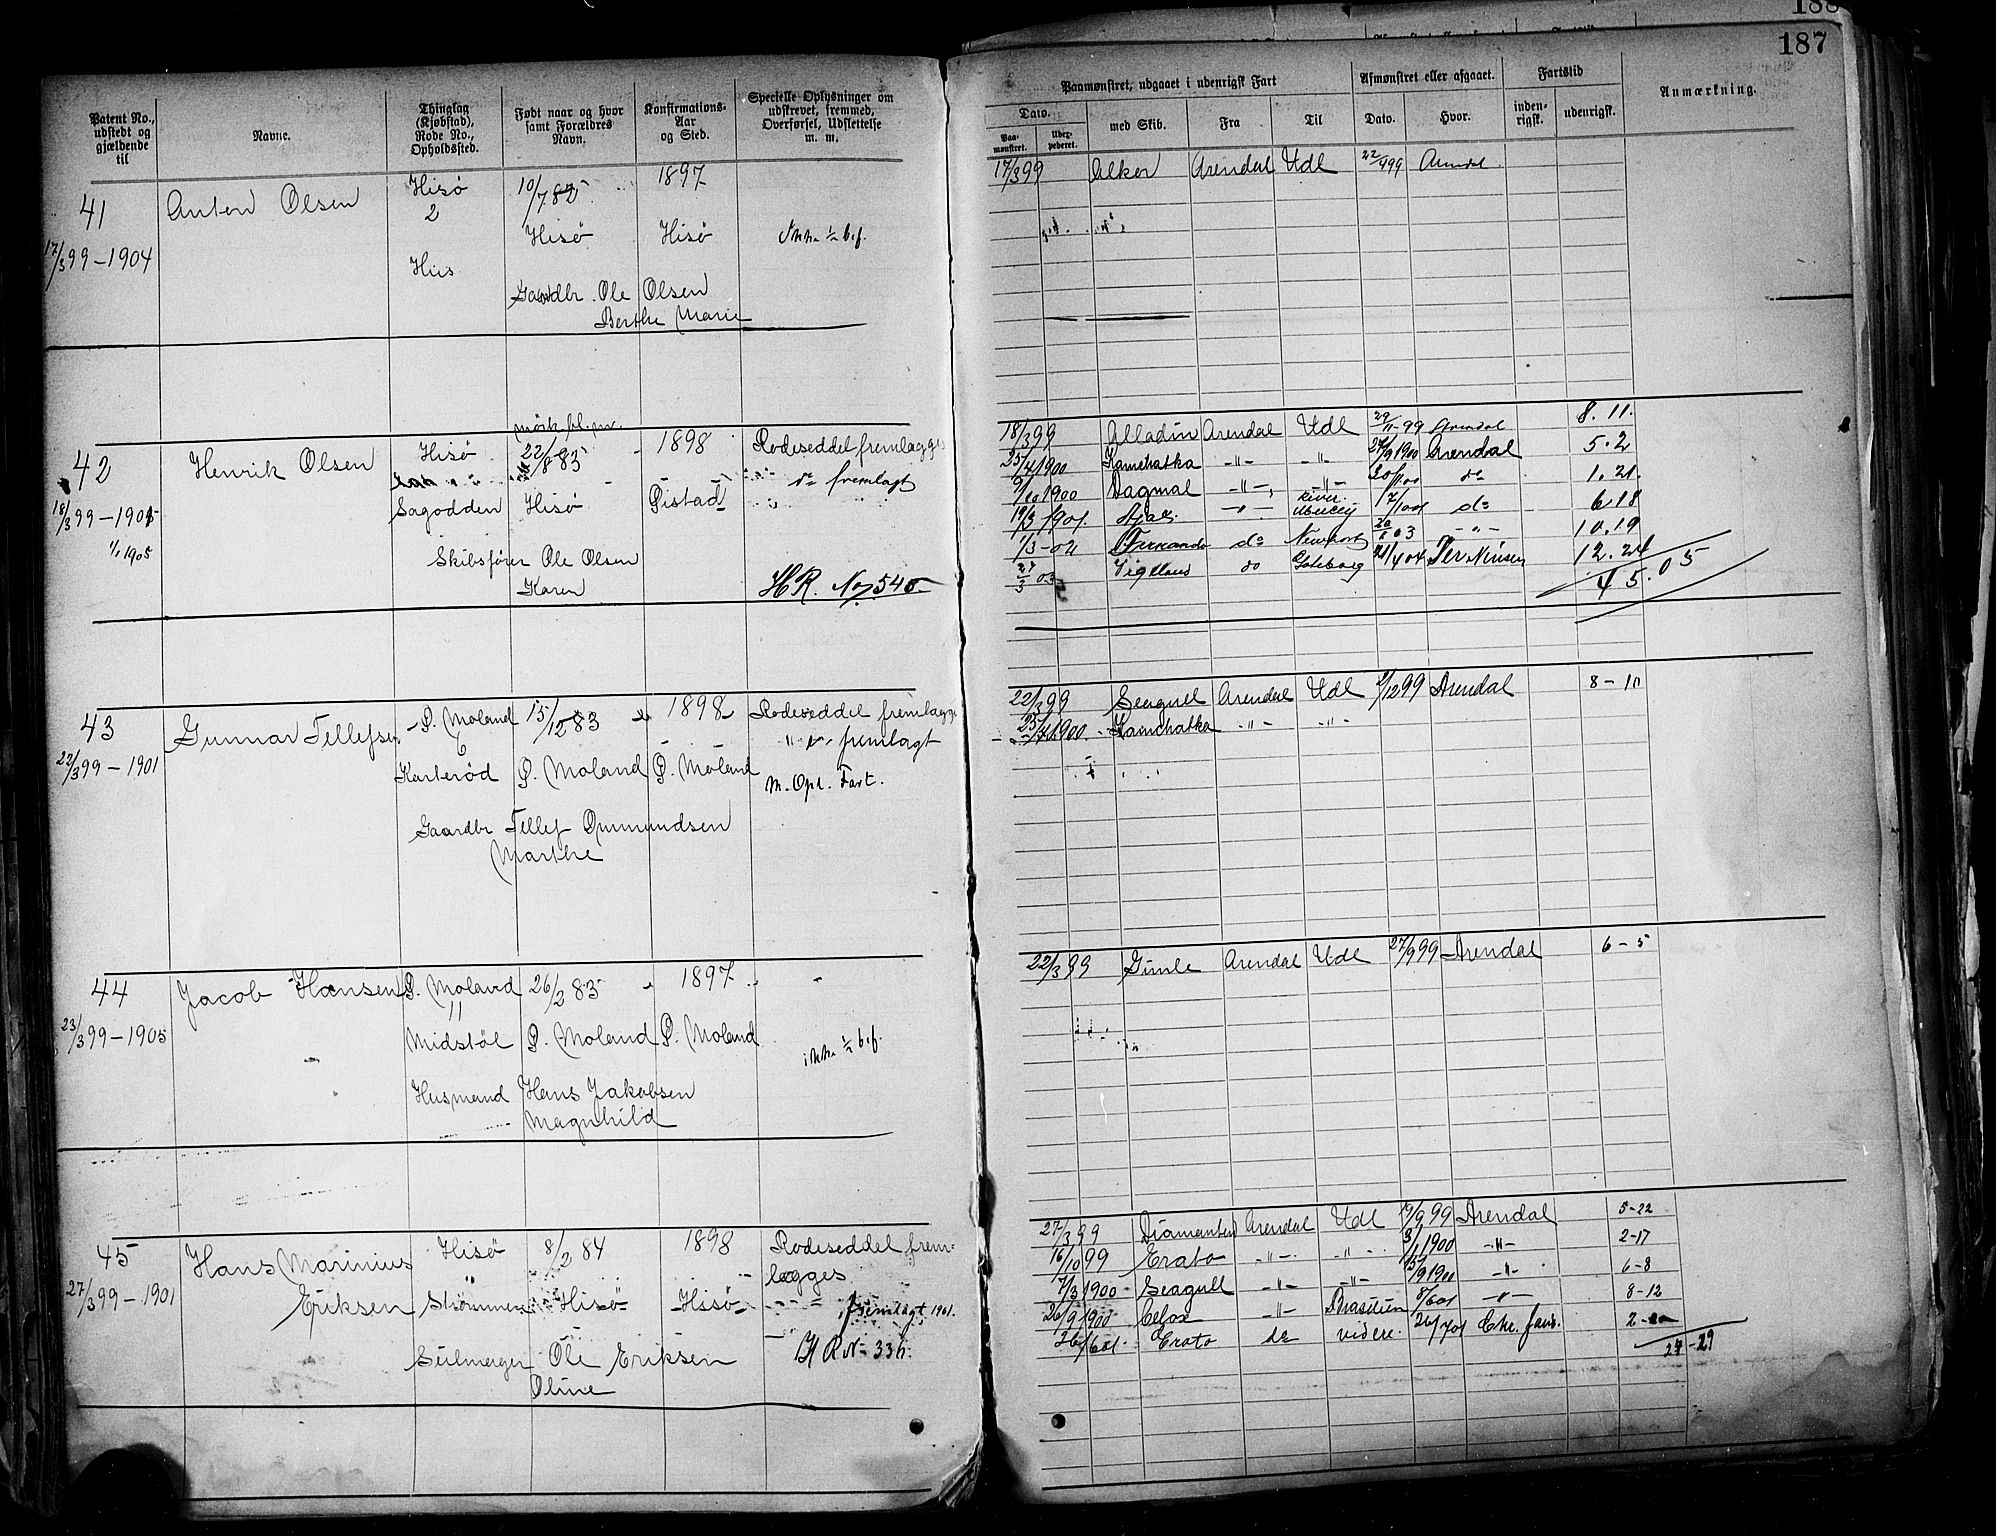 188
187
Patent No., udstedt og gjældende til
Navne.
Thinglag (Kjøbstad), Rode No., Opholdssted.
Født naar og hvor samt Forældres Navn.
Konfirmations-Aar og Sted.
Specielle Oplysninger om udskrevet, fremmed, Overførsel, Udslettelse m. m.
Paamønstret, udgaaet i udenrigsk Fart
Afmønstret eller afgaaet.
Fartstid
Anmærkning.
Dato.
Paa-mønstret.
med Skib.
Fra
Til
Dato.
Hvor.
inden-rigsk.
udenrigsk.
41 Anton Olsen Hisø 10/7 82 1897
2
17/3 99 – 1904 Hisø Hisø
Hus
Gaardbr. Ole Olsen
Berthe Marie
17/3 99 Alker Arendal Udl 22/9 99 Arendal
42 Henrik Olsen Hisø 22/8 83 1898 Rodeseddel fremlægges
do fremlagt
18/3 99 – 1901 Sagodden Hisø Øistad
1/1 1905
Skibsfører Ole Olsen
Karen
HR. No 545
18/3 99 Alladin Arendal Udl 29/11-99 Arendal 8. 11.
25/4 1900 Kamchatka –"– –"– 27/9 1900 Arendal 5. 2
9/10 1900 Dagmar –"– –"– 30/11 00 do 1. 21.
19/3 1901. Ajax. –"– do 6. 18
1/3-02 Fernando do Newport –"– 10. 19
27/3 03 Vigeland do Goteborg 21/4 04 12. 24
45. 05
43 Gunnar Tellefsen Ø. Moland 15/12 83 1898 Rodeseddel fremlægges
6 fremlagt
22/3 99 – 1901 Karterød Ø. Moland Ø. Moland M. Oph. Fart.
Gaardbr Tellef Ommundsen
Marthe
22/3 99 Seagull Arendal Udl 2/12 99 Arendal 8 – 10
25/4 1900. Kamchatka –"– –"–
44 Jacob Hansen Ø. Moland 26/2 83 1897
11
23/3 99 – 1905 Midstøl Ø. Moland Ø. Moland
Husmand Hans Jakobsen
Magnhild
22/3 99 Gimle Arendal Udl 27/9 99 Arendal 6 – 5
45 Hans Marinius Hisø 8/2 84 1898 Rodeseddel frem-
lægges
27/3 99 – 1901 Eriksen Strømmen Hisø Hisø fremlagt 1901.
Seilmager Ole Eriksen H R No 336.
Oline
27/3 99 Diamanten Arendal Udl 19/9 99 Arendal 5-22
16/10 99 Erato –"– –"– 3/1 1900 –"– 2-17
7/3 1900 Seagull –"– –"– 15/9 1900 –"– 6-8
26/9 1900 –"– Brasilien 8/6 01 –"– 8-12
26/6 01. Erato do videre. 26/7 01